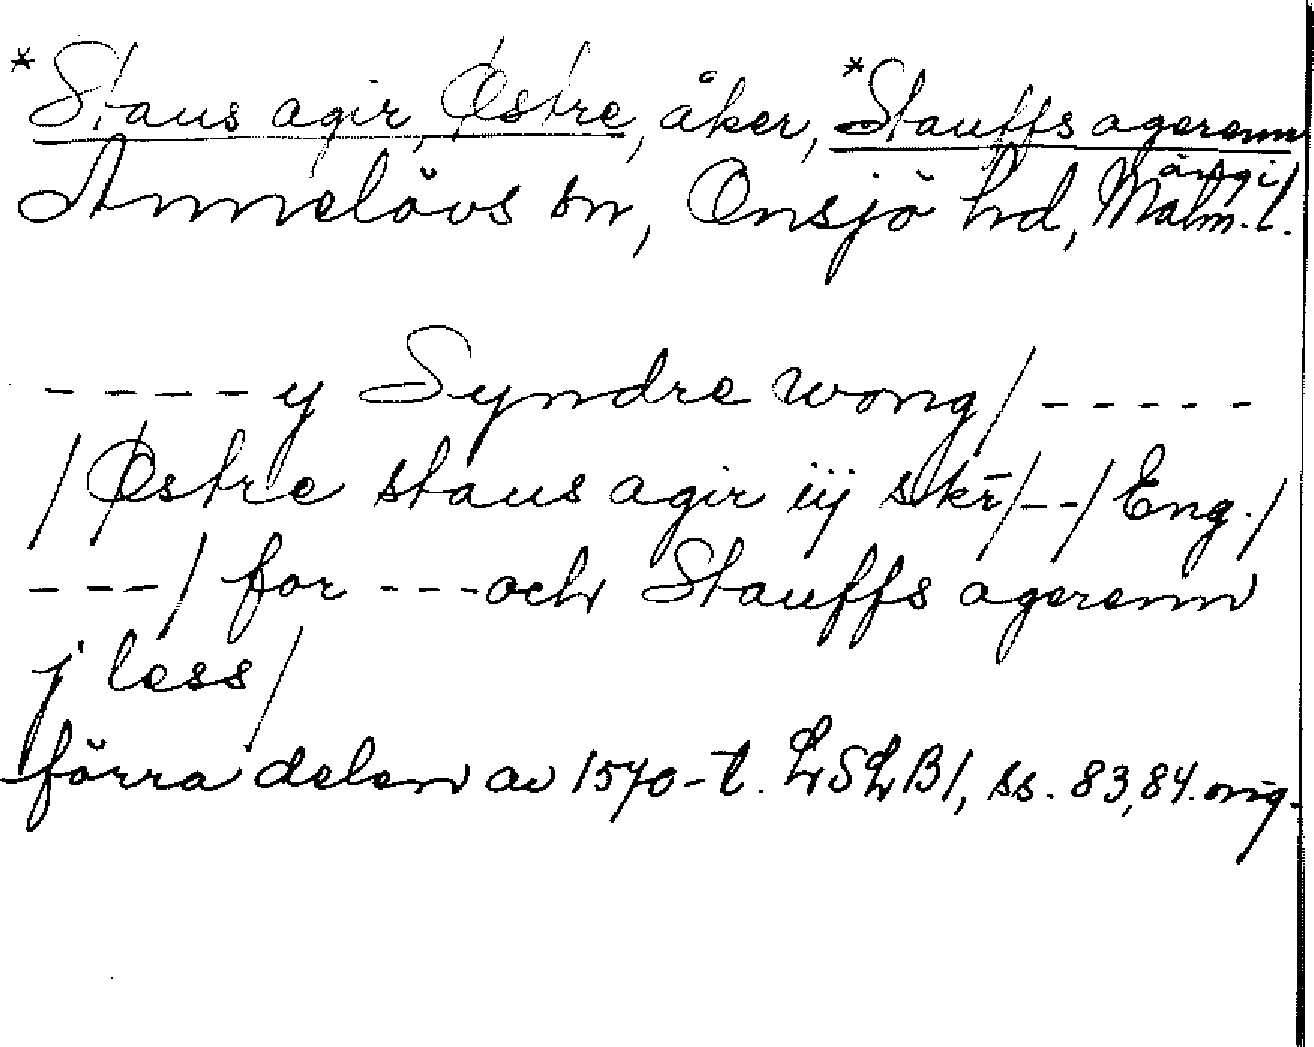 *Staus agir, Østre, åker, *Stauffs agerenn
ängi
Annelövs sn, Onsjö hd, Malm. l.
- - - - y Syndre wong/ - - - - -
/Østre staus agir iij skr̄/--/Eng./
- - -/ for - - -och Stauffs agerenn
j less/
förra delen av 1570-t. LSLB1, ss. 83,84. orig.